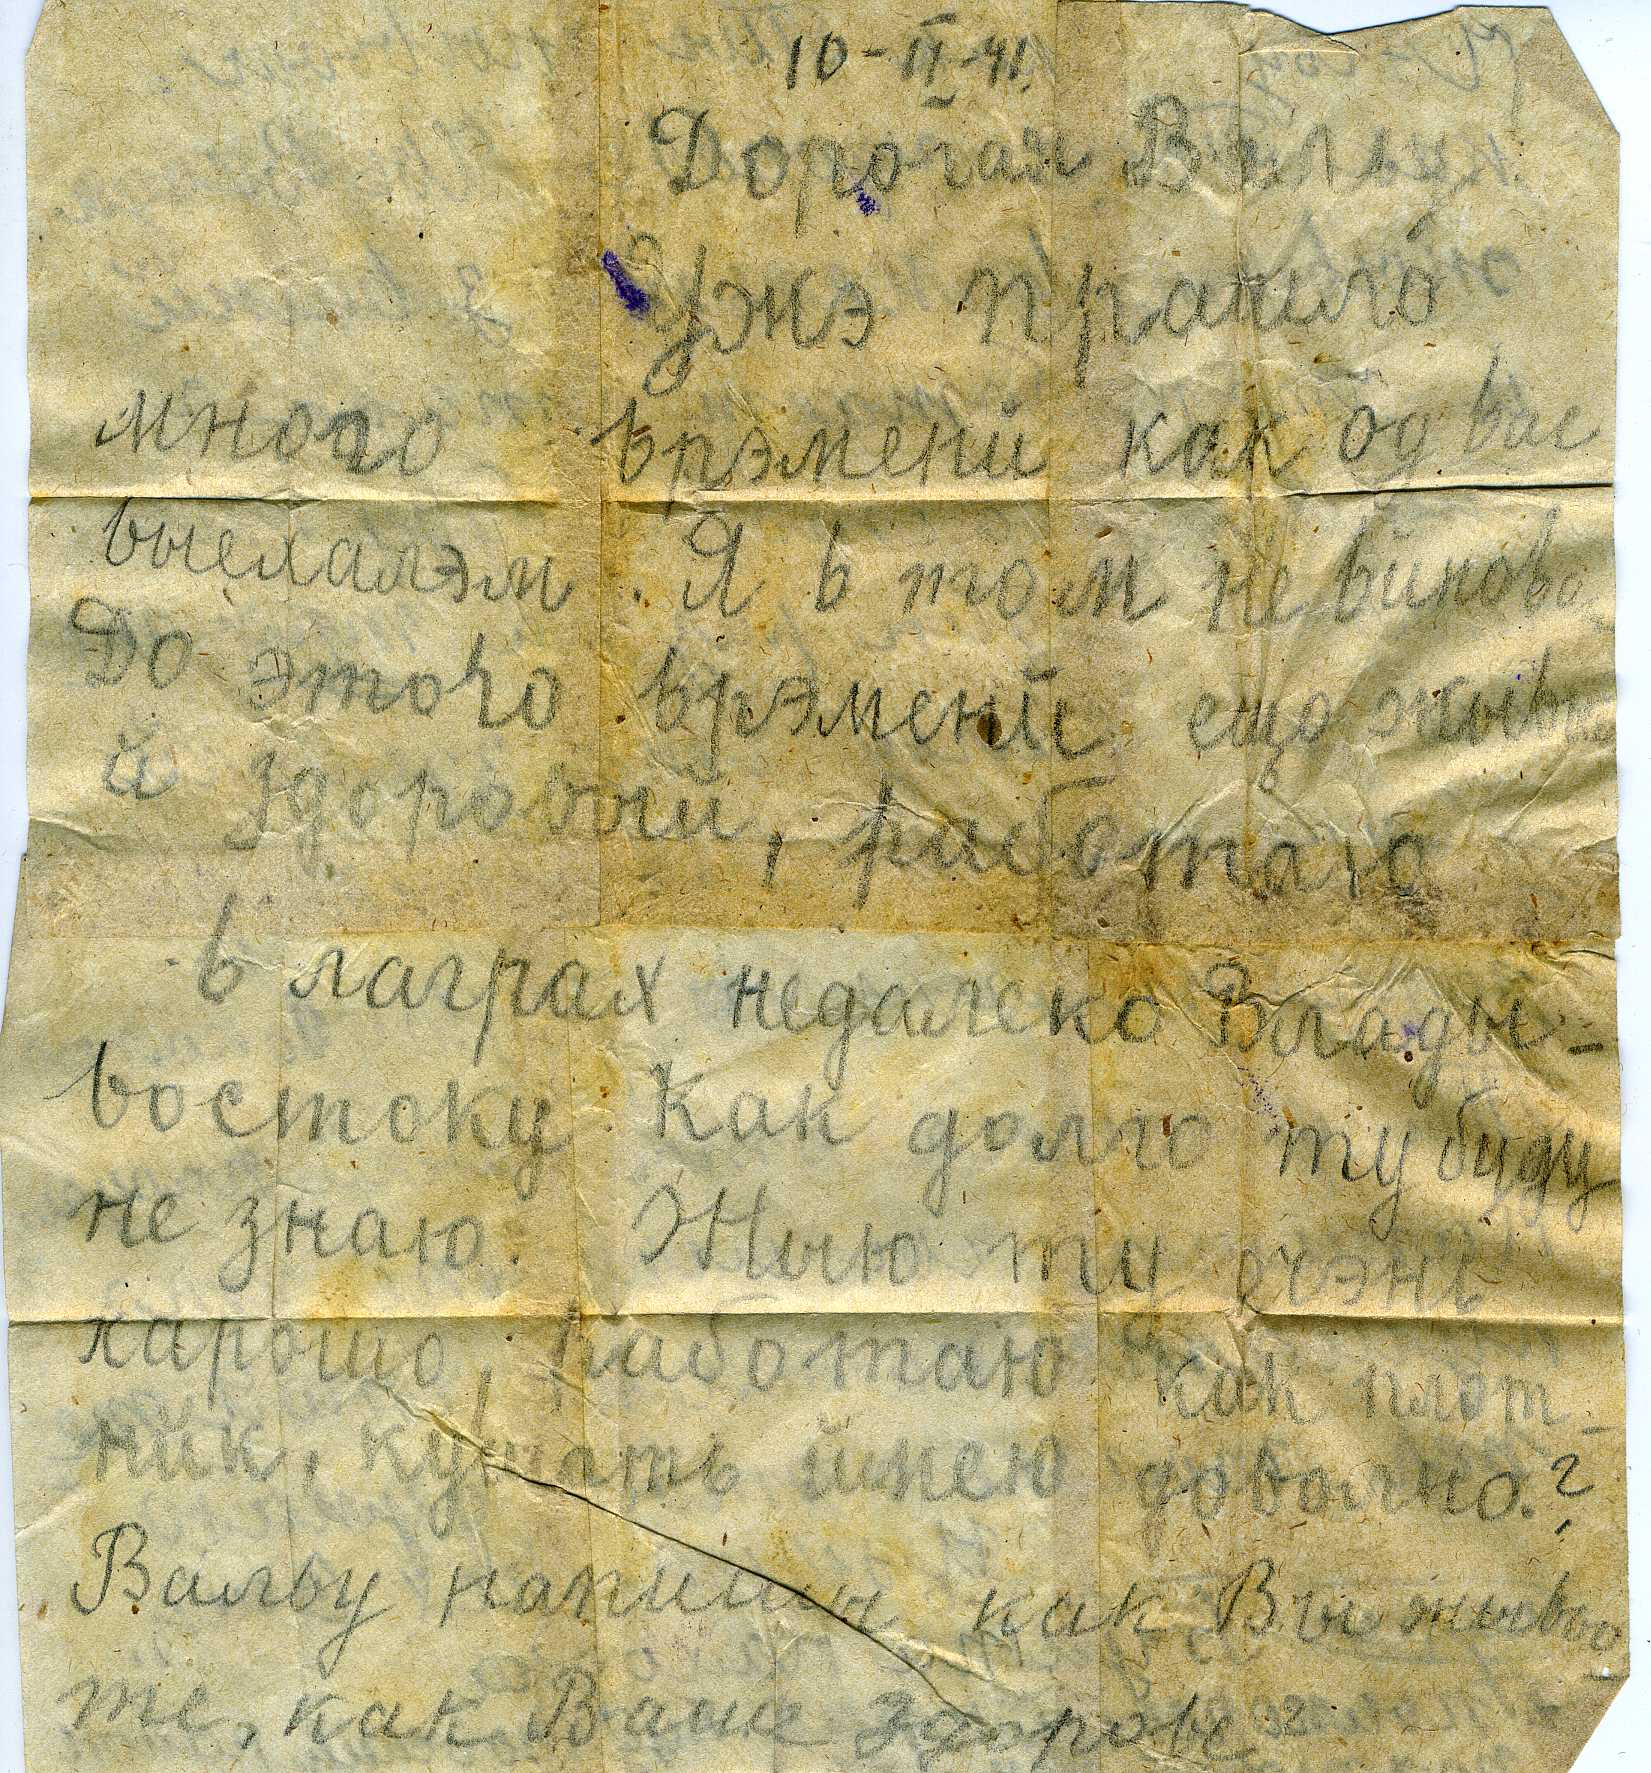 10-II-41.
Дорогая Вальу
Ужэ прашло
много врэмени как од вас
выехалэм. Я в том не винова
До этого врэмени ещо жывы
и здоровый, работаю
в лаграх недалеко Влады-
востоку Как долго ту буду
не знаю. Жыю ту очэнь
харошо, работаю как плот-
ник, кушать имею довольно.?
Вальу напишы как Вы жывьо-
те, как Ваше здоровье?